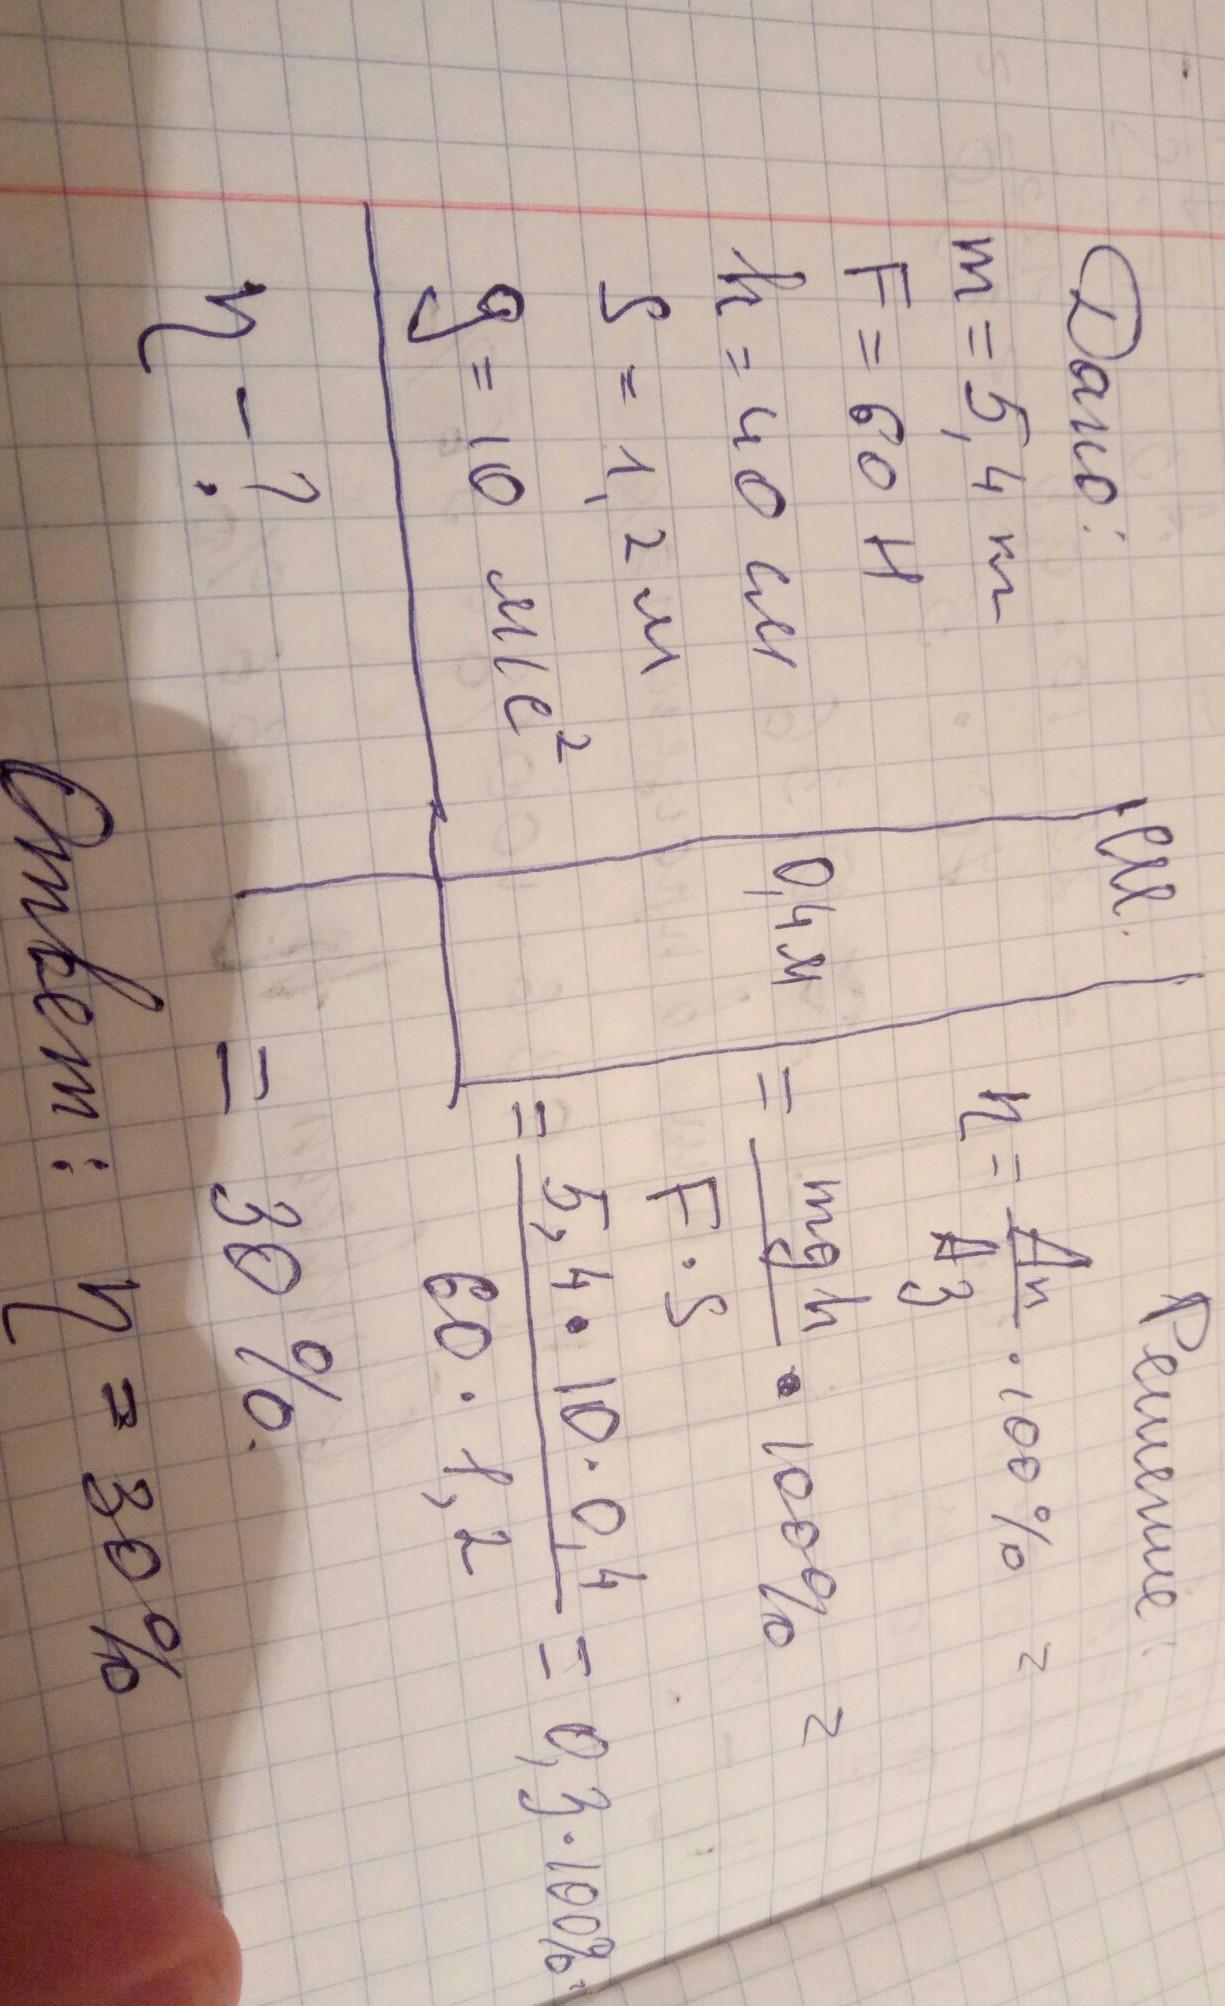 Дано:
m = 5,4 кг
F = 60 Н
h = 40 см
S = 1,2 м
g = 10 м/с²
η - ?
СИ.
0,4 м
Решение:
η = Aп/Aз · 100% =
= mgh/F·S · 100% =
= 5,4 · 10 · 0,4/60 · 1,2 = 0,3 · 100% =
= 30%.
Ответ: η = 30%